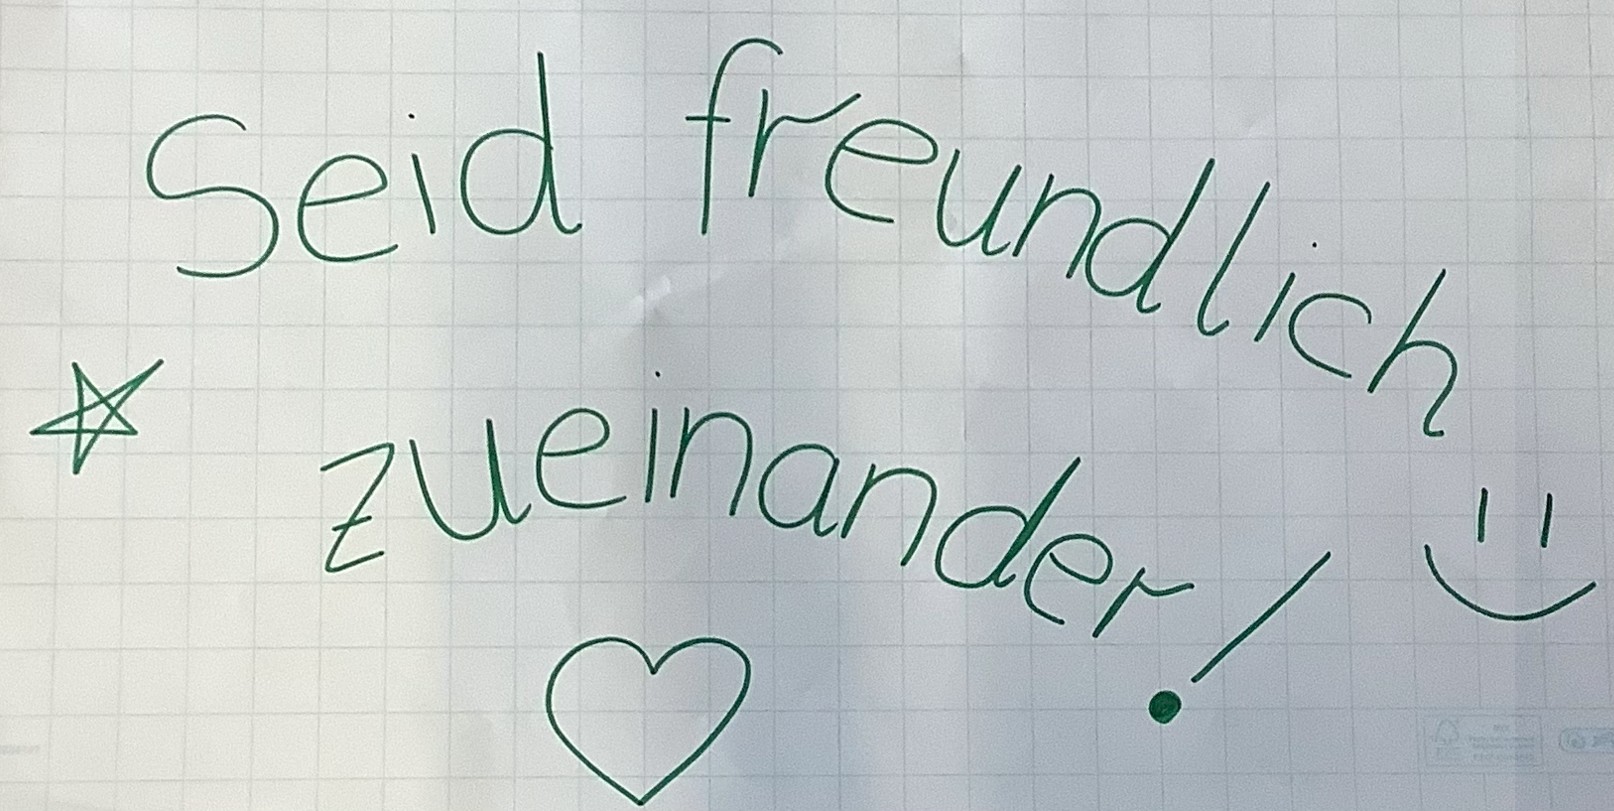 Seid freundlich
zueinander!